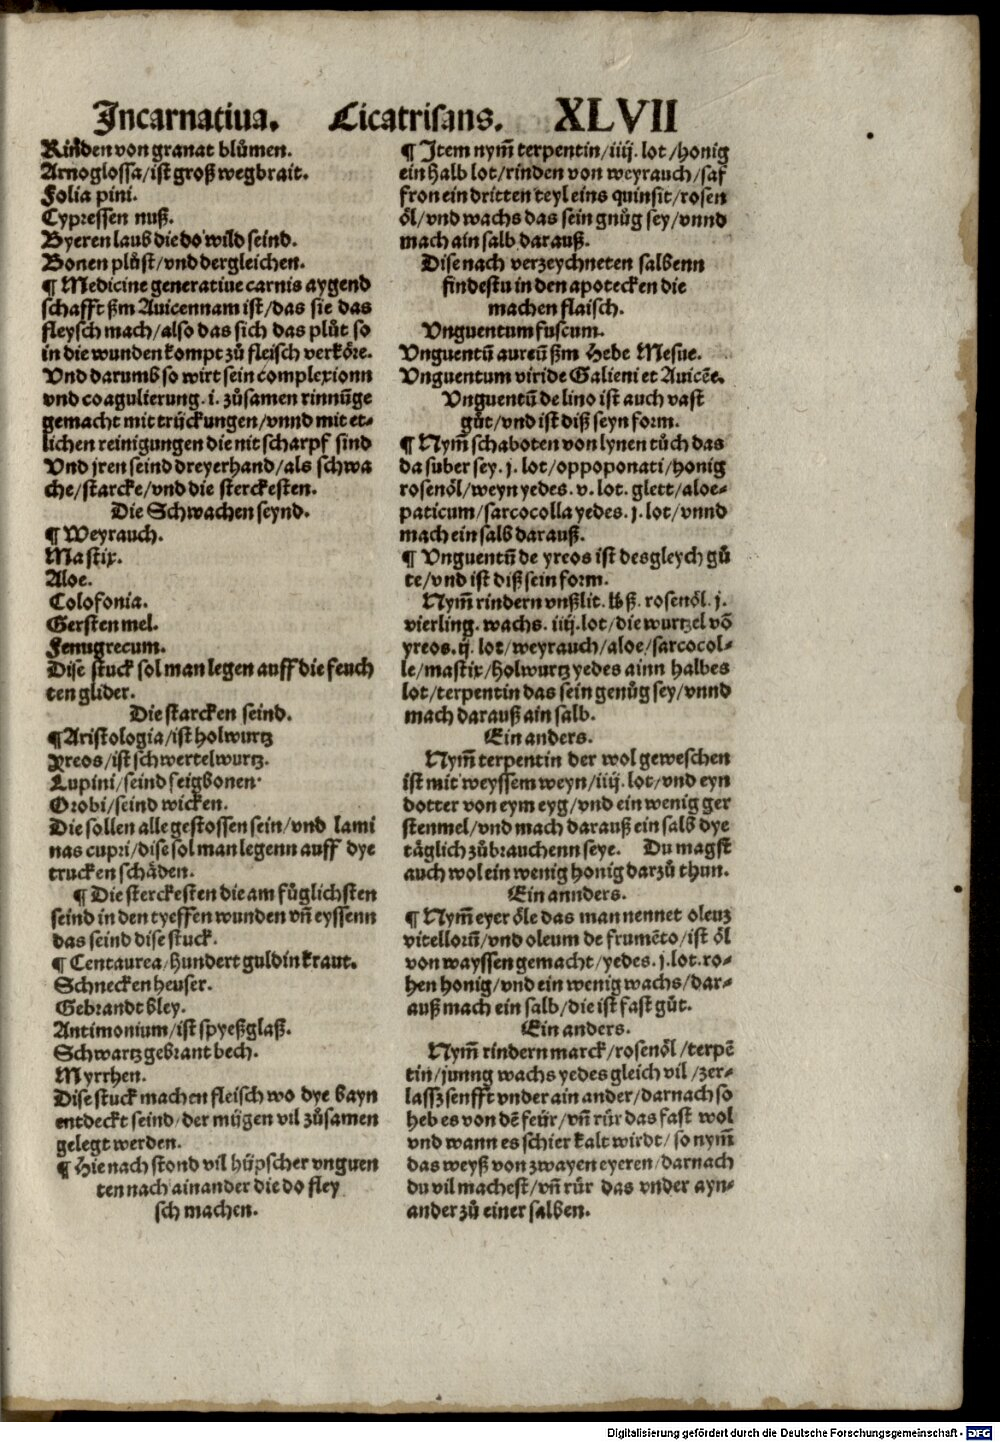 Incarnatiua. Cicatrisans. XLVII
Rinden von granat blůmen.
Arnoglossa/ist groß wegbrait.
Folia pini.
Cypressen nuß.
Byeren laub die do wild seind.
Bonen plůst/vnd dergleichen.
¶ Medicine generatiue carnis aygend
schafft ßm Auicennam ist/das sie das
fleysch mach/also das sich das plůt so
in die wunden kompt zů fleisch verköre.
Vnd darumb so wirt sein complexionn
vnd coagulierung .i. zůsamen rinnũge
gemacht mit trückungen/vnnd mit et⸗
lichen reinigungen die nit scharpf sind
Vnd jren seind dreyerhand/als schwa
che/starcke/vnd die sterckesten.
Die Schwachen seynd.
¶ Weyrauch.
Mastix.
Aloe.
Colofonia.
Gersten mel.
Fenugrecum.
Dise stuck sol man legen auff die feuch
ten glider.
Die starcken seind.
¶ Aristologia/ist holwurtz
Yreos/ist schwertelwurtz.
Lupini/seind feigbonen
Orobi/seind wicken.
Die sollen alle gestossen sein/vnd lami
nas cupri/dise sol man legenn auff dye
trucken schäden.
¶ Die sterckesten die am füglichsten
seind in den tyeffen wunden vñ eyssenn
das seind dise stuck.
¶ Centaurea/hundert guldin kraut.
Schnecken heuser.
Gebrandt bley.
Antimonium/ist spyeßglaß.
Schwartz gebrant bech.
Myrrhen.
Dise stuck machen fleisch wo dye bayn
entdeckt seind/der mügen vil zůsamen
gelegt werden.
¶ Hie nach stond vil hüpscher vnguen
ten nach ainander die do fley
sch machen.
¶ Item nym̃ terpentin/iiij. lot/honig
ein halb lot/rinden von weyrauch/saf
fron ein dritten teyl eins quinsit/rosen
öl/vnd wachs das sein gnůg sey/vnnd
mach ain salb darauß.
Dise nach verzeychneten salbenn
findestu in den apotecken die
machen flaisch.
Vnguentum fuscum.
Vnguentũ aureũ ßm Hebe Mesue.
Vnguentum viride Galieni et Auicẽe.
Vnguentũ de lino ist auch vast
gůt/vnd ist diß seyn form.
¶ Nym̃ schaboten von lynen tůch das
da suber sey .j. lot/oppoponati/honig
rosenöl/weyn yedes .v. lot. glett/aloe⸗
paticum/sarcocolla yedes .j. lot/vnnd
mach ein salb darauß.
¶ Vnguentũ de yreos ist desgleych gů
te/vnd ist diß sein form.
Nym̃ rindern vnßlit. lb ß. rosenöl .j.
vierling. wachs. iiij. lot/die wurtzel võ
yreos .ij. lot/weyrauch/aloe/sarcocol⸗
le/mastix/holwurtz yedes ainn halbes
lot/terpentin das sein genůg sey/vnnd
mach darauß ain salb.
Ein anders.
Nym̃ terpentin der wol geweschen
ist mit weyssem weyn/iiij. lot/vnd eyn
dotter von eym eyg/vnd ein wenig ger
stenmel/vnd mach darauß ein salb dye
täglich zůbrauchenn seye. Du magst
auch wol ein wenig honig darzů thun.
Ein annders.
¶ Nym̃ eyer öle das man nennet oleuz
vitellorũ/vnd oleum de frumẽto/ist öl
von wayssen gemacht/yedes .j. lot. ro⸗
hen honig/vnd ein wenig wachs/dar⸗
auß mach ein salb/die ist fast gůt.
Ein anders.
Nym̃ rindern marck/rosenöl/terpẽ
tin/junng wachs yedes gleich vil/zer⸗
lassz senfft vnder ain ander/darnach so
heb es von dẽ feür/vñ rür das fast wol
vnd wann es schier kalt wirdt/so nym̃
das weyß von zwayen eyeren/darnach
du vil machest/vñ rür das vnder ayn⸗
ander zů einer salben.
Digitalisierung gefördert durch die Deutsche Forschungsgemeinschaft - DFG